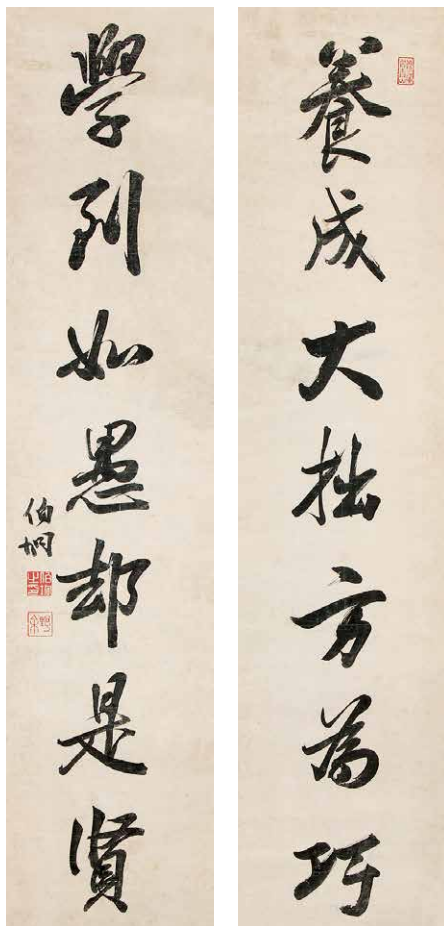 養成大拙方為巧
學到如愚却是賢
伯坰